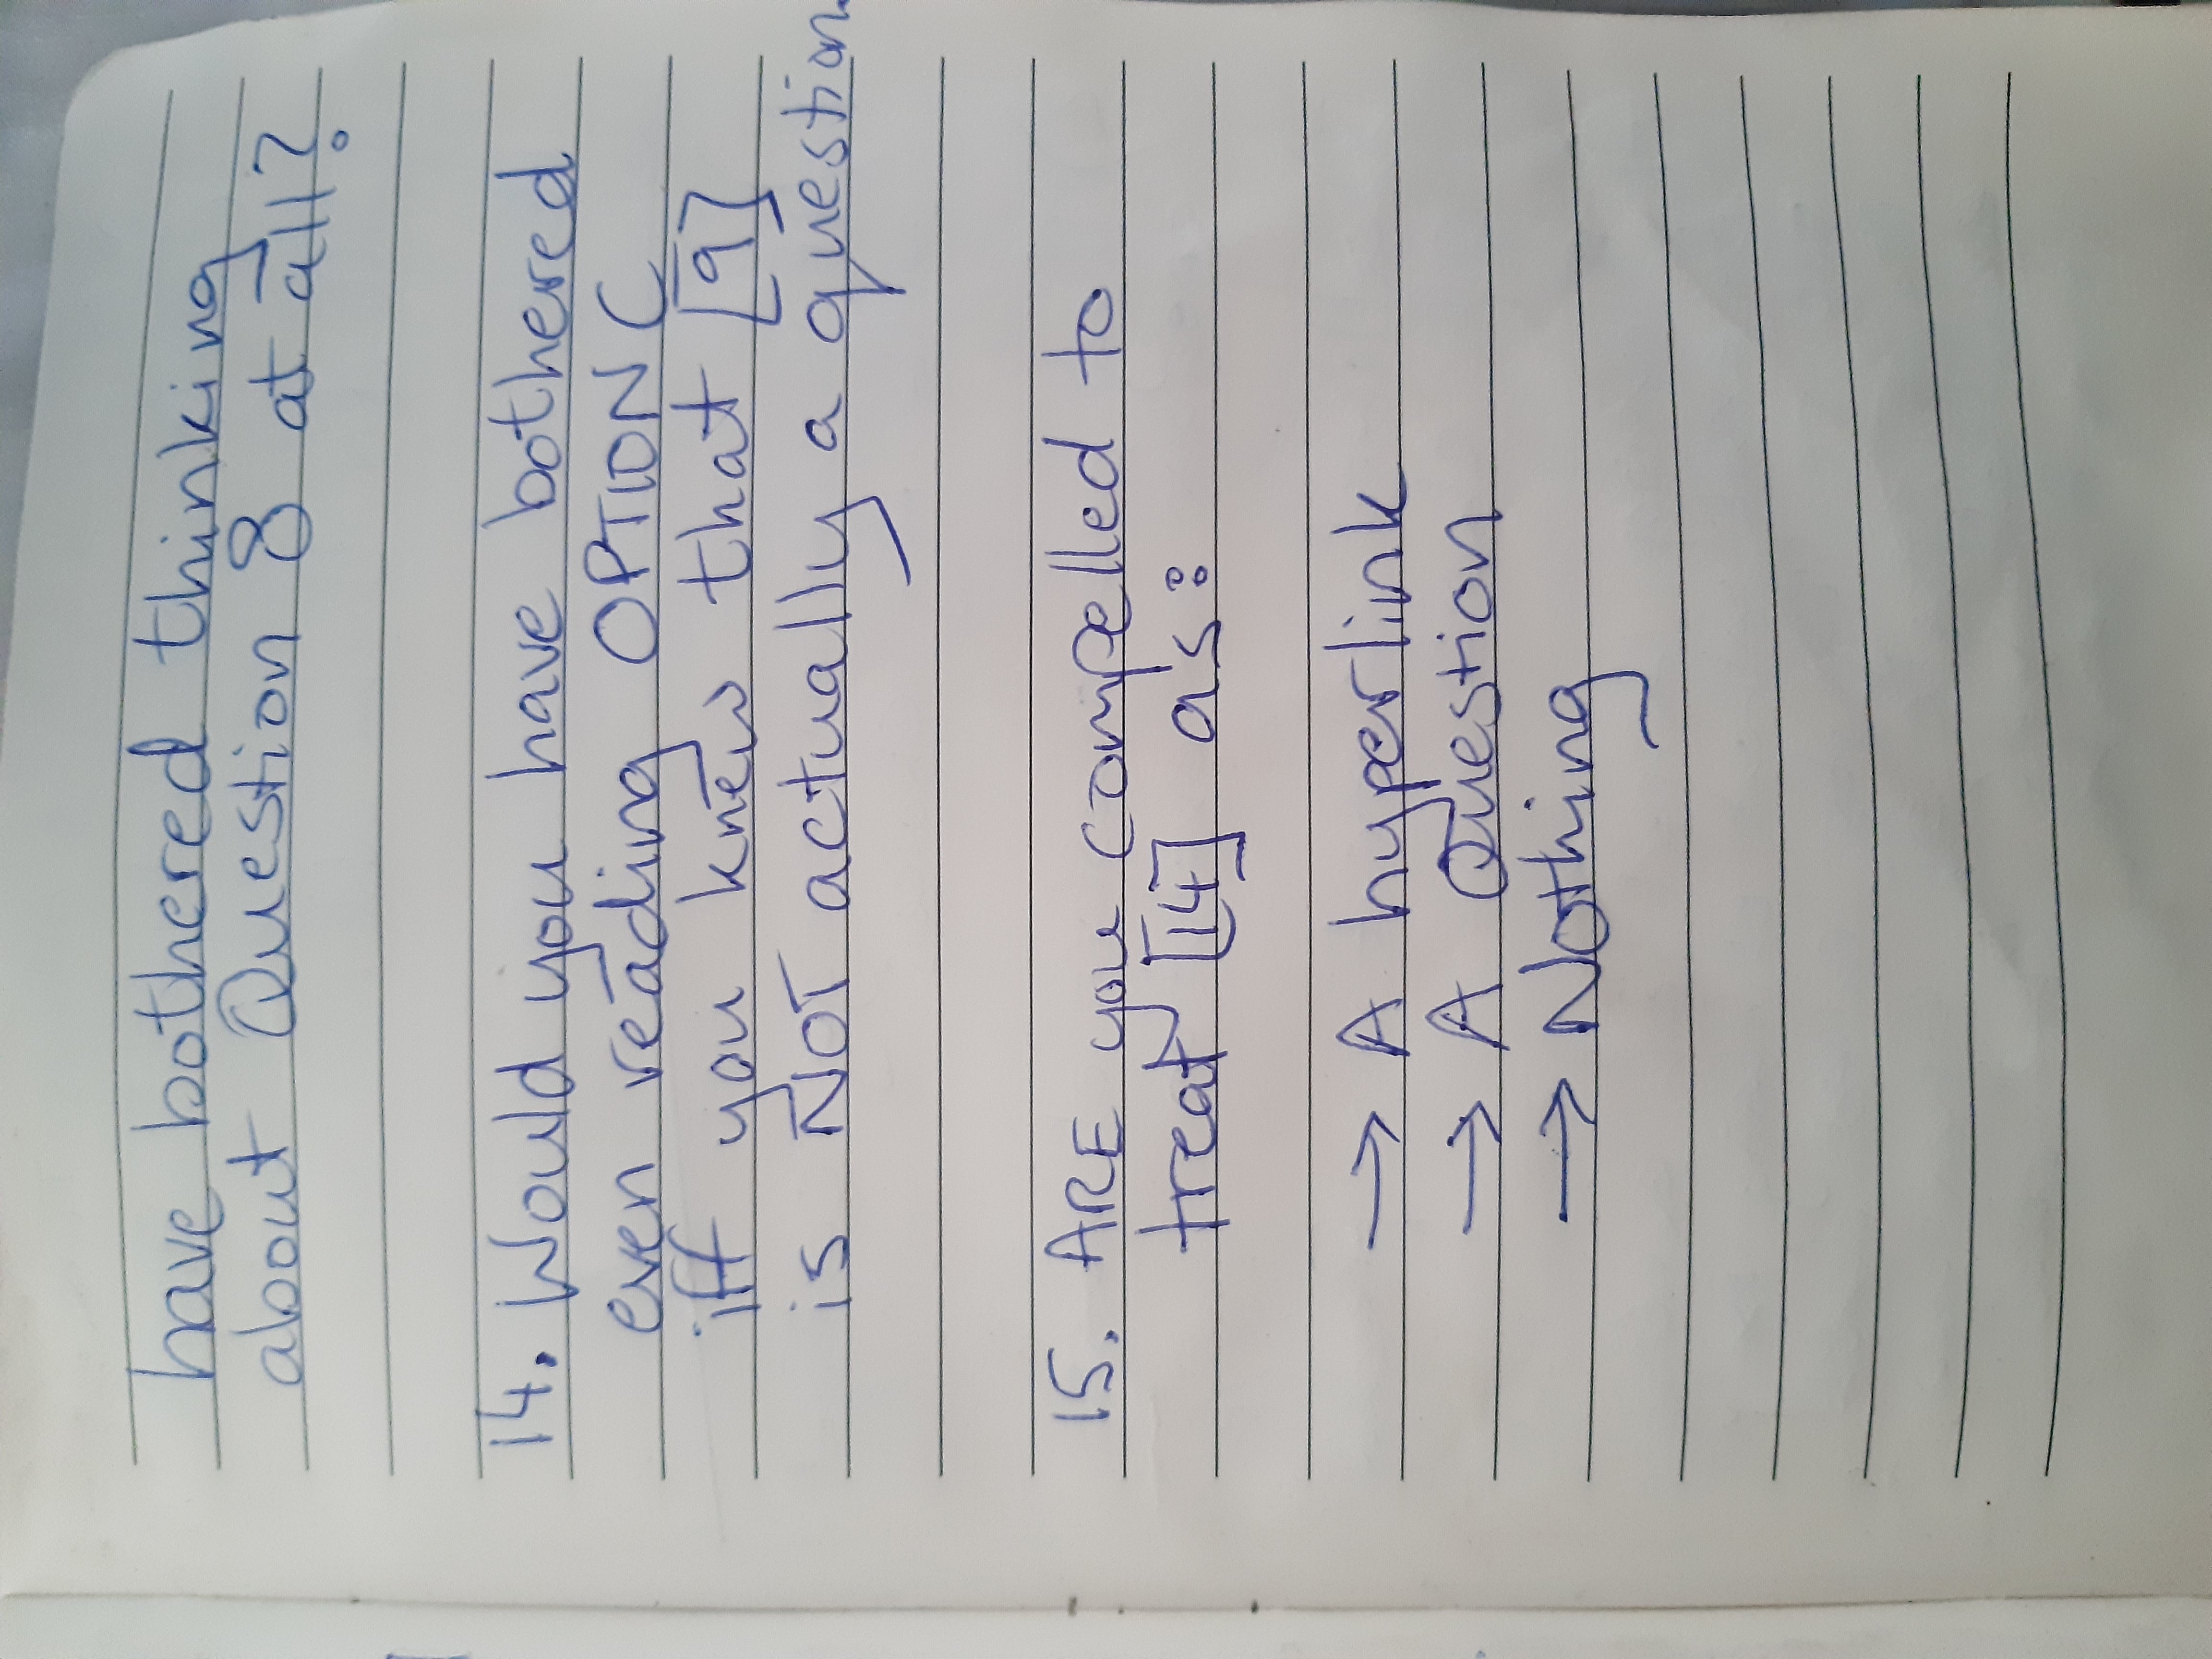 have bothered thinking
about Question 8 at all?
14. Would you have bothered
even reading OPTION C
iff you knew that [9]
is NOT actually a question
15. ARE you compelled to
treat [14] as:
→ A hyperlink
→ A Question
→ Nothing